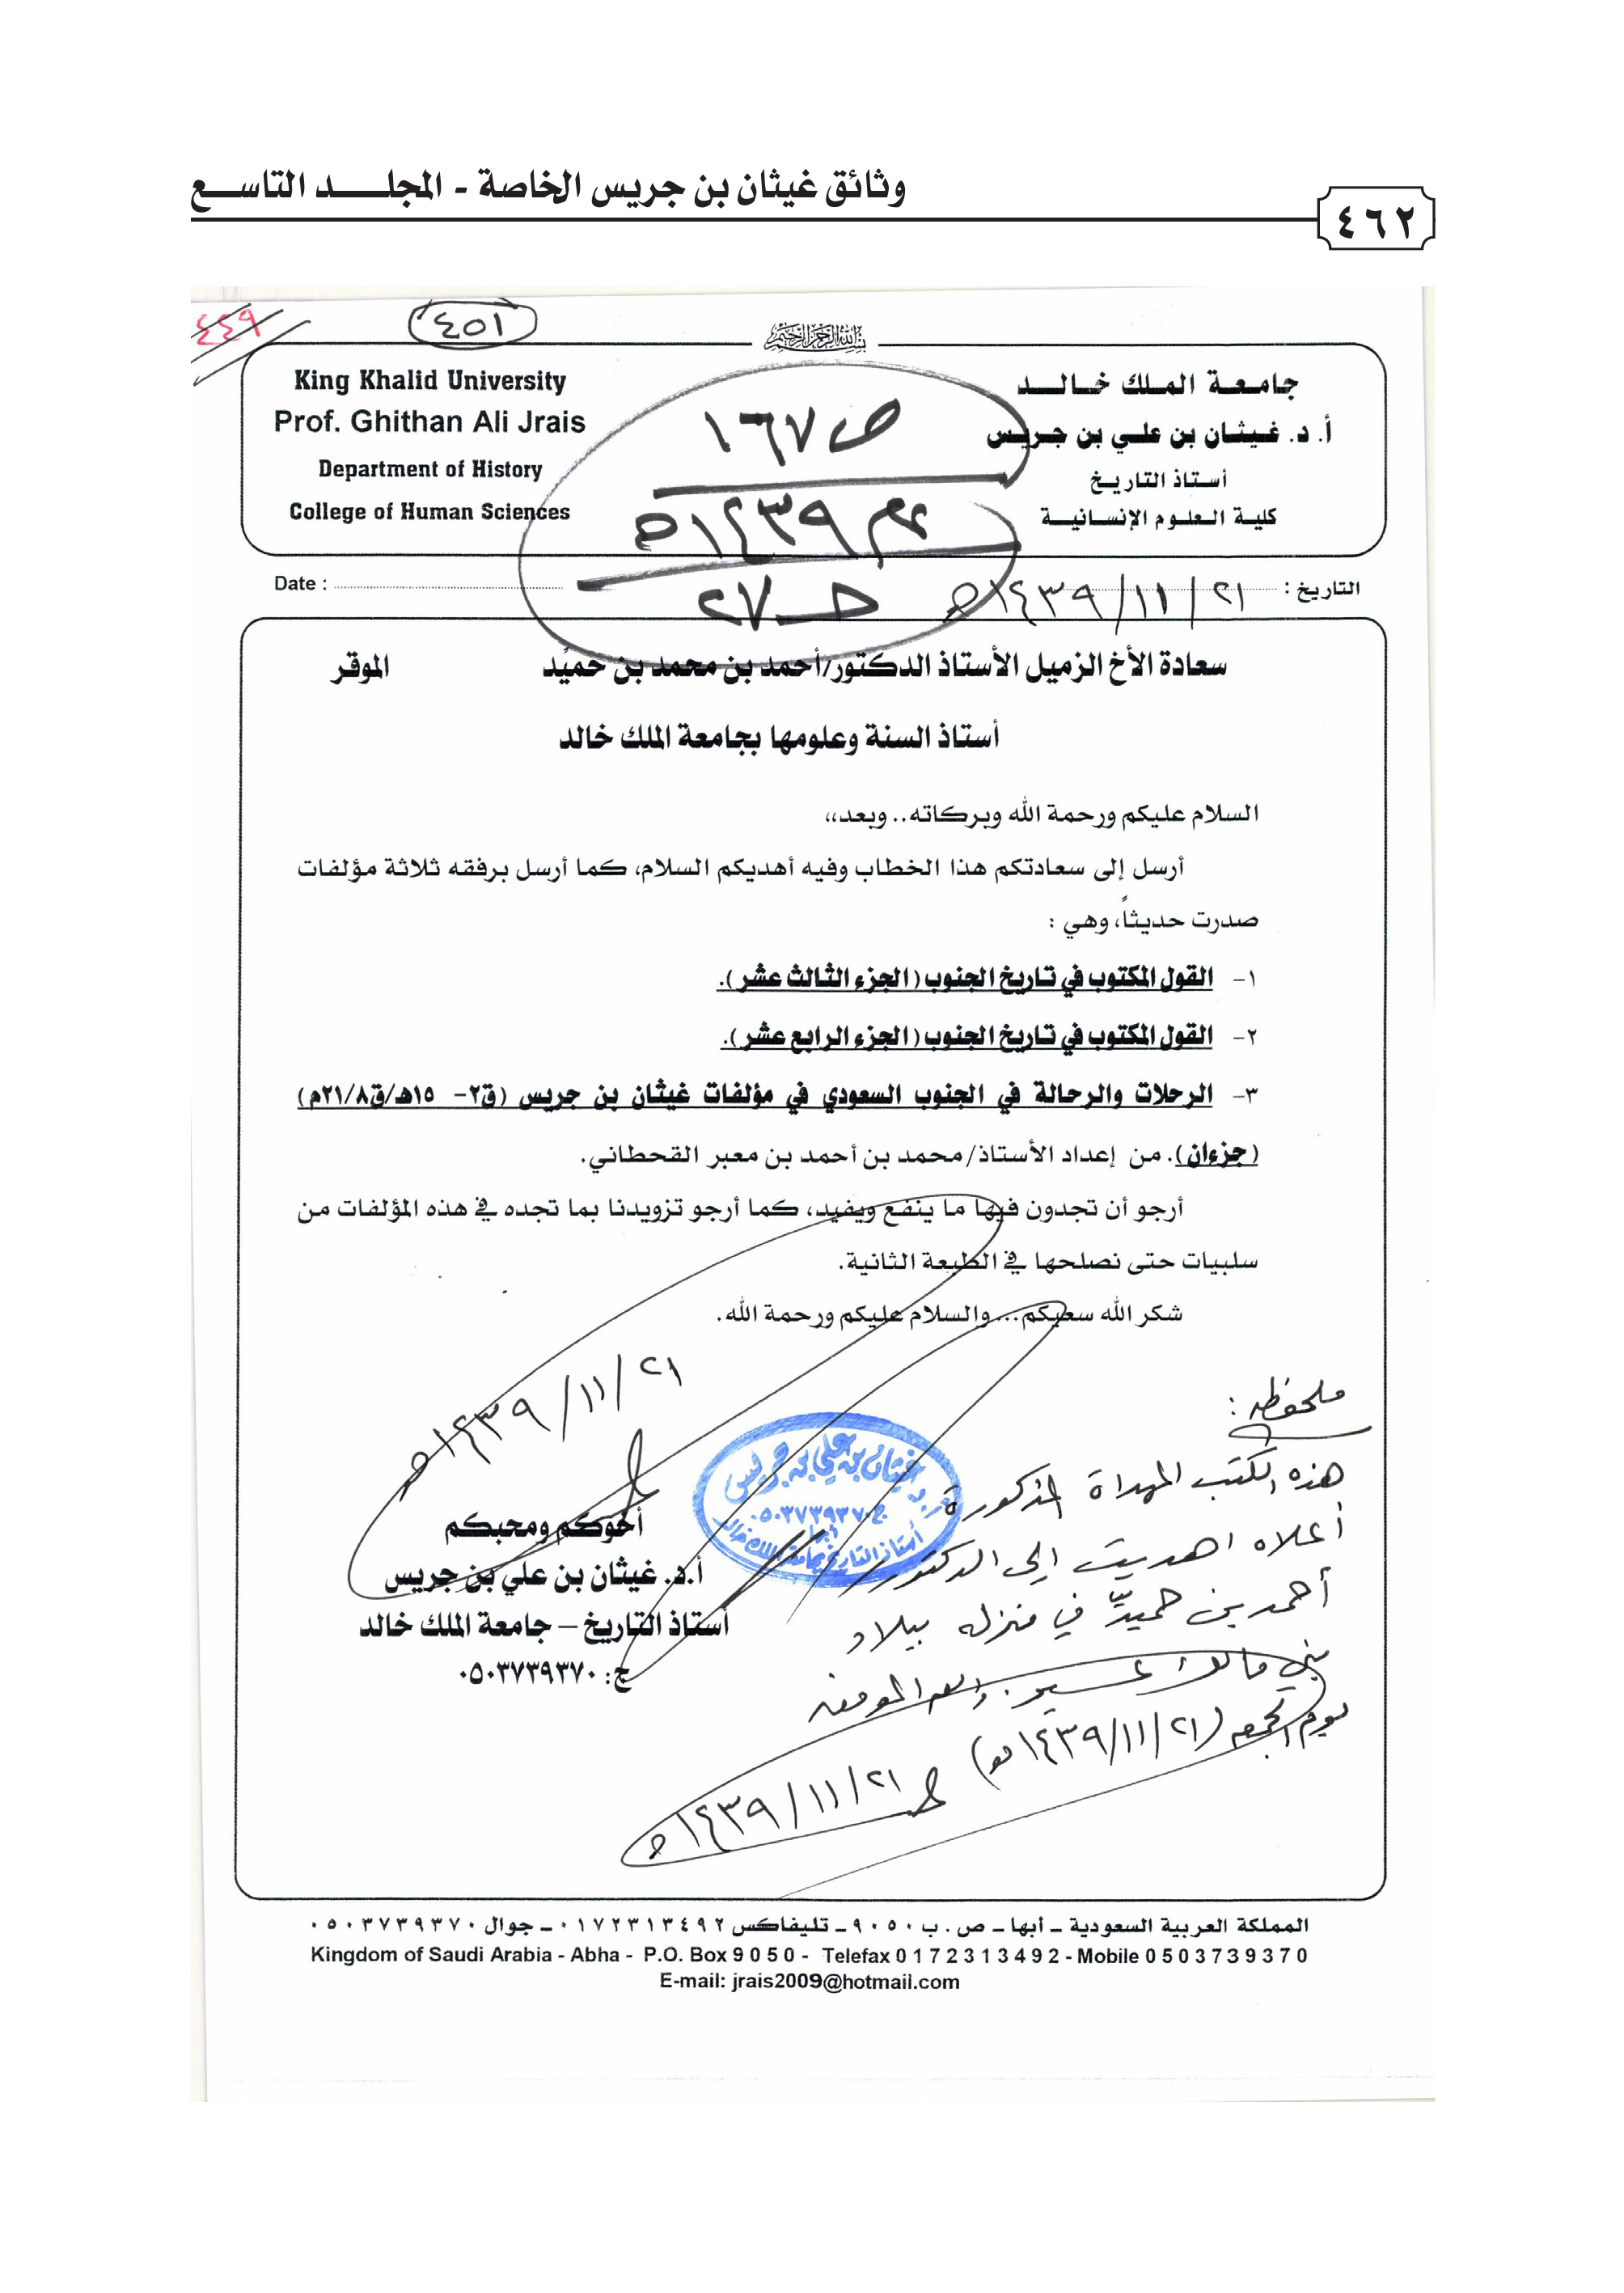 وثائق غيثان بن جريس الخاصة - المجلد التاسع
٤٦٢
٤٤٩
٤٥١
بسم الله الرحمن الرحيم
King Khalid University
Prof. Ghithan Ali Jrais
Department of History
College of Human Sciences
جامعة الملك خالد
أ. د. غيثان بن علي بن جريس
أستاذ التاريخ
كلية العلوم الإنسانية
ص ١٦٧
١٤٣٩هـ
٢٧
Date :
التاريخ : ٢١ / ١١ / ١٤٣٩هـ
سعادة الأخ الزميل الأستاذ الدكتور/أحمد بن محمد بن حميّد الموقر
أستاذ السنة وعلومها بجامعة الملك خالد
السلام عليكم ورحمة الله وبركاته.. وبعد،،
أرسل إلى سعادتكم هذا الخطاب وفيه أهديكم السلام، كما أرسل برفقه ثلاثة مؤلفات
صدرت حديثاً، وهي :
١- القول المكتوب في تاريخ الجنوب (الجزء الثالث عشر).
٢- القول المكتوب في تاريخ الجنوب (الجزء الرابع عشر).
٣- الرحلات والرحالة في الجنوب السعودي في مؤلفات غيثان بن جريس (ق٢- ١٥هـ/ق٢١/٨م)
(جزءان). من إعداد الأستاذ/محمد بن أحمد بن معبر القحطاني.
أرجو أن تجدون فيها ما ينفع ويفيد، كما أرجو تزويدنا بما تجده في هذه المؤلفات من
سلبيات حتى نصلحها في الطبعة الثانية.
شكر الله سعيكم... والسلام عليكم ورحمة الله.
٢١ / ١١ / ١٤٣٩هـ
أخوكم ومحبكم
أ.د. غيثان بن علي بن جريس
أستاذ التاريخ – جامعة الملك خالد
ج: ٠٥٠٣٧٣٩٣٧٠
غيثان بن علي بن جريس
ج: ٠٥٠٣٧٣٩٣٧٠
أستاذ التاريخ بجامعة الملك خالد
ملحوظه :
هذه الكتب المهداة المذكورة
أعلاه اهديت الى الدكتور
أحمد بن حميدّ في منزله ببلاد
بني مالك عسير. والله الموفق
يوم الجمعه (٢١/١١/١٤٣٩هـ)
٢١/١١/١٤٣٩هـ
المملكة العربية السعودية – أبها – ص . ب ٩٠٥٠ – تليفاكس ٠١٧٢٣١٣٤٩٢ – جوال ٠٥٠٣٧٣٩٣٧٠
Kingdom of Saudi Arabia - Abha - P.O. Box 9050 - Telefax 0172313492 - Mobile 0503739370
E-mail: jrais2009@hotmail.com